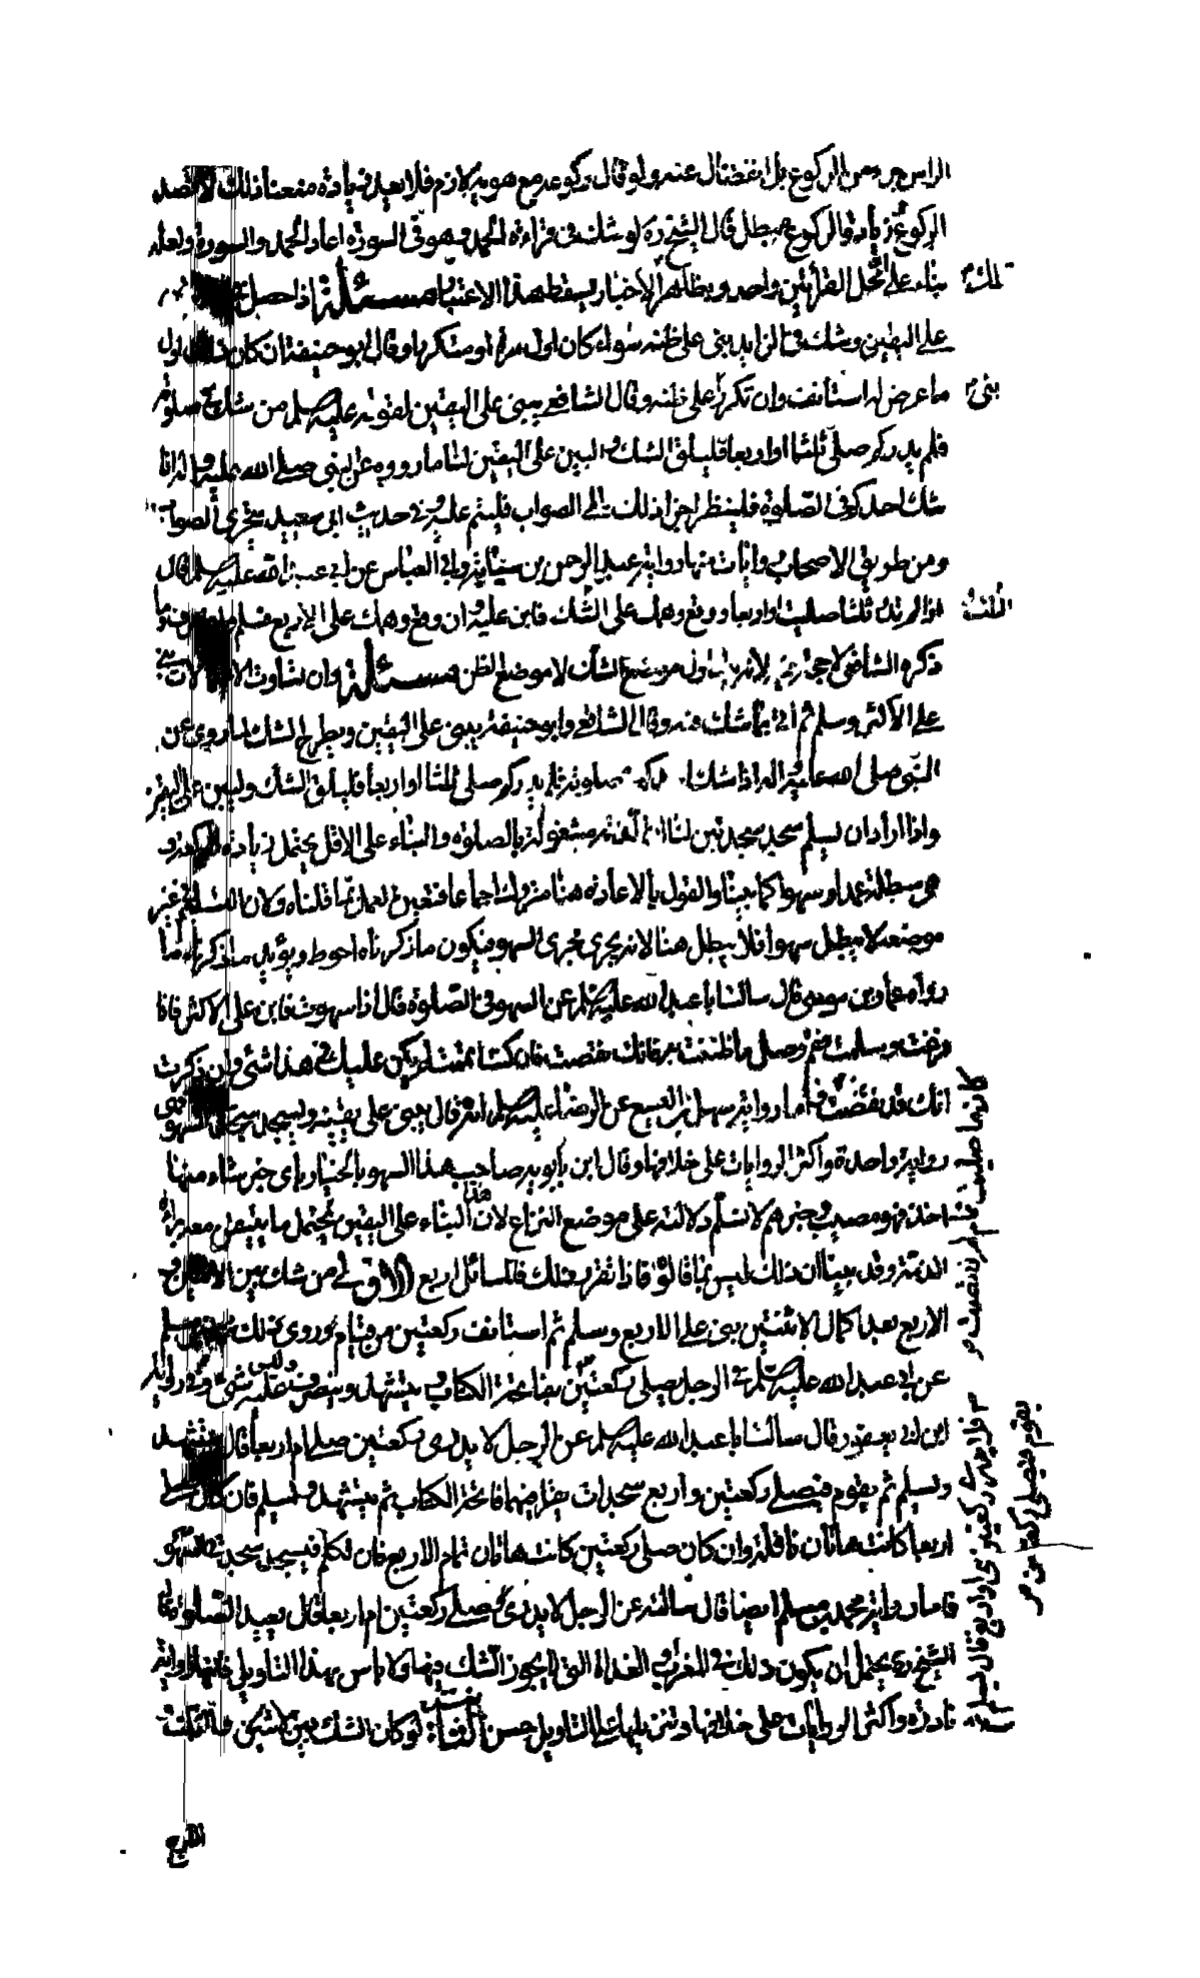 الراس جزء من الركوع بل انفصال عنه ولو قال ركوعه مع هويه لازم فلا يعيد زيادة منعنا ذلك لا قصد
الركوع زيادة والركوع مبطل قال الشيخ ره لو شك في قراءة الحمد وهو في السورة اعاد الحمد والسورة ولعله
بناء على ان محل القرائتين واحد وبظاهر الاخبار يسقط هذا الاعتبار مسئلة اذا حصل
على اليقين وشك في الزايد بنى على ظنه سواء كان اول مرة او متكررا وقال ابو حنيفة ان كان ذلك اول
ما عرض له استانف وان تكرر على ظنه وقال الشافعي يبني على اليقين لقوله عليه السلم من شك في صلوته
فلم يدر كم صلى ثلثا او اربعا فليلق الشك وليبن على اليقين لنا ما رووه عن النبي صلى الله عليه واله اذا
شك احدكم في الصلوة فلينظر احرى ذلك الى الصواب فليتم عليه وفي حديث ابن مسعود يتحرى الصواب
ومن طريق الاصحاب روايات منها رواية عبد الرحمن بن سيابة وابي العباس عن ابي عبد الله عليه السلم قال
اذا لم تدر ثلثا صليت او اربعا ووقع وهمك على الثلث فابن عليه وان وقع وهمك على الاربع فسلم وانصرف وما
ذكره الشافعي لا حجة فيه لانه يتناول موضع الشك لا موضع الظن مسئلة وان تساوت الاحتمالات بنى
على الاكثر وسلم ثم اتى بما شك فيه وقال الشافعي وابو حنيفة يبني على اليقين ويطرح الشك لما روي عن
النبي صلى الله عليه واله اذا شك احدكم في صلوته فلم يدر كم صلى ثلثا او اربعا فليلق الشك وليبن على اليقين
واذا اراد ان يسلم سجد سجدتين لنا ان الذمة مشغولة بالصلوة والبناء على الاقل يحتمل زيادة الركعة و
هو مبطلة عمدا وسهوا كما بينا والقول بالاعادة هنا متروك اجماعا فتعين العمل بما قلناه ولان التسليم في غير
موضعه لا يبطل سهوا فلا يبطل هنا لانه يجري مجرى السهو فيكون ما ذكرناه احوط ويؤيد ما ذكرناه ما
رواه عمار بن موسى قال سالت ابا عبد الله عليه السلم عن السهو في الصلوة فقال اذا سهوت فابن على الاكثر فاذا
فرغت وسلمت فقم وصل ما ظننت انك نقصت فان كنت اتممت لم يكن عليك في هذا شئ وان ذكرت
انك قد نقصت فاما رواية سهل بن اليسع عن الرضا عليه السلم انه قال يبني على يقينه ويسجد سجدتي السهو فهي
رواية واحدة واكثر الروايات على خلافها وقال ابن بابويه صاحب هذا السهو بالخيار باى خبر شاء منها
اخذ فهو مصيب وخبرهم لا نسلم دلالته على موضع النزاع لان هذا البناء على اليقين يحتمل ما يتيقن معه براءة
الذمة وقد بينا ان ذلك ليس بما قالوا فاذا تقرر ذلك فالمسائل اربع الاولى من شك بين الاثنتين و
الاربع بعد اكمال الاثنتين بنى على الاربع وسلم ثم استانف ركعتين من قيام وروى ذلك محمد بن مسلم
عن ابي عبد الله عليه السلم في الرجل صلى ركعتين بفاتحة الكتاب ويتشهد وينصرف وليس عليه شئ وفي رواية
ابن ابي يعفور قال سالت ابا عبد الله عليه السلم عن الرجل لا يدري ركعتين صلى ام اربعا قال يتشهد
ويسلم ثم يقوم فيصلي ركعتين واربع سجدات يقرا فيهما فاتحة الكتاب ثم يتشهد ويسلم فان كان صلى
اربعا كانت هاتان نافلة وان كان صلى ركعتين كانت هاتان تمام الاربع فان تكلم فيسجد سجدتي السهو
فاما رواية محمد بن مسلم ايضا قال سالته عن الرجل لا يدري صلى ركعتين ام اربعا قال يعيد الصلوة قال
الشيخ ره يحتمل ان يكون ذلك في المغرب والغداة التي لا يجوز الشك فيهما ولا باس بهذا التاويل فانها رواية
نادرة واكثر الروايات على خلافها وتنزيلها على التاويل حسن لو كان الشك بين
كانما صليت اتم له ما نقصت
فلا يدري ركعتين هي او اربع قال يسلم
يقوم فيصلي ركعتين
الاربع